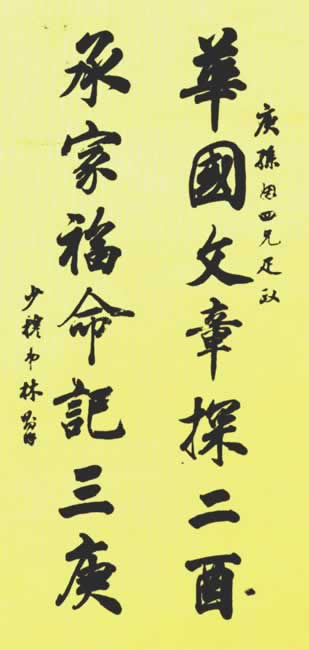 庚孫四兄疋政
華國文章探二酉
承家福命記三庚
少穆弟林則徐